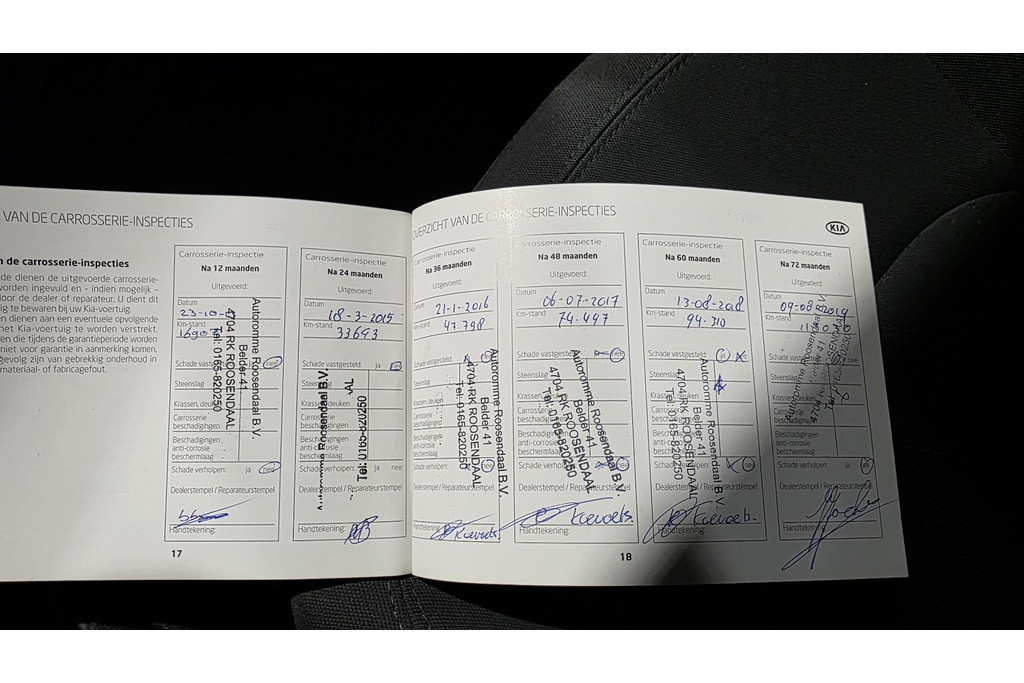 VAN DE CARROSSERIE-INSPECTIES
n de carrosserie-inspecties
de dienen de uitgevoerde carrosserie-
worden ingevuld en - indien mogelijk -
door de dealer of reparateur. U dient dit
ig te bewaren bij uw Kia-voertuig.
en dienen aan een eventuele opvolgende
het Kia-voertuig te worden verstrekt.
en die tijdens de garantieperiode worden
niet voor garantie in aanmerking komen,
gevolg zijn van gebrekkig onderhoud in
materiaal- of fabricagefout.
Carrosserie-inspectie
Na 12 maanden
Uitgevoerd:
Datum
23-10-
Km-stand
Schade vastgesteld: nee
Steenslag
Krassen, deuken
Carrosserie
beschadigingen
Beschadigingen
anti-corrosie
beschermlaag
Schade verholpen: ja nee
Dealerstempel / Reparateurstempel
Handtekening:
Autoromme Roosendaal B.V.
Belder 41
4704 RK ROOSENDAAL
Tel: 0165-820250
17
Carrosserie-inspectie
Na 24 maanden
Uitgevoerd:
Datum
18-3-2015
Km-stand
33643
Schade vastgesteld: ja nee
Steenslag
Krassen, deuken
Carrosserie
beschadigingen
Beschadigingen
anti-corrosie
beschermlaag
Schade verholpen: ja nee
Dealerstempel / Reparateurstempel
Handtekening:
Roosendaal B.V.
Tel: 0165-820250
OVERZICHT VAN DE CARROSSERIE-INSPECTIES
KIA
Carrosserie-inspectie
Na 36 maanden
Uitgevoerd:
Datum
21-1-2016
Km-stand
47.798
Schade vastgesteld: nee
Steenslag
Krassen, deuken
Carrosserie
beschadigingen
Beschadigingen
anti-corrosie
beschermlaag
Schade verholpen: nee
Dealerstempel / Reparateurstempel
Koevoets.
Handtekening:
Autoromme Roosendaal B.V.
Belder 41
4704 RK ROOSENDAAL
Tel: 0165-820250
Carrosserie-inspectie
Na 48 maanden
Uitgevoerd:
Datum
06-07-2017
Km-stand
74.497
Schade vastgesteld: nee
Steenslag
Krassen, deuken
Carrosserie
beschadigingen
Beschadigingen
anti-corrosie
beschermlaag
Schade verholpen: nee
Dealerstempel / Reparateurstempel
Koevoets.
Handtekening:
Autoromme Roosendaal B.V.
Belder 41
4704 RK ROOSENDAAL
Tel: 0165-820250
18
Carrosserie-inspectie
Na 60 maanden
Uitgevoerd:
Datum
13-08-2018
Km-stand
94.310
Schade vastgesteld: ja
Steenslag
Krassen, deuken
Carrosserie
beschadigingen
Beschadigingen
anti-corrosie
beschermlaag
Schade verholpen: nee
Dealerstempel / Reparateurstempel
Koevoets.
Handtekening:
Autoromme Roosendaal B.V.
Belder 41
4704 RK ROOSENDAAL
Tel: 0165-820250
Carrosserie-inspectie
Na 72 maanden
Uitgevoerd:
Datum
09-08-2019
Km-stand
Schade vastgesteld: nee
Steenslag
Krassen, deuken
Carrosserie
beschadigingen
Beschadigingen
anti-corrosie
beschermlaag
Schade verholpen: ja
Dealerstempel / Reparateurstempel
Handtekening: